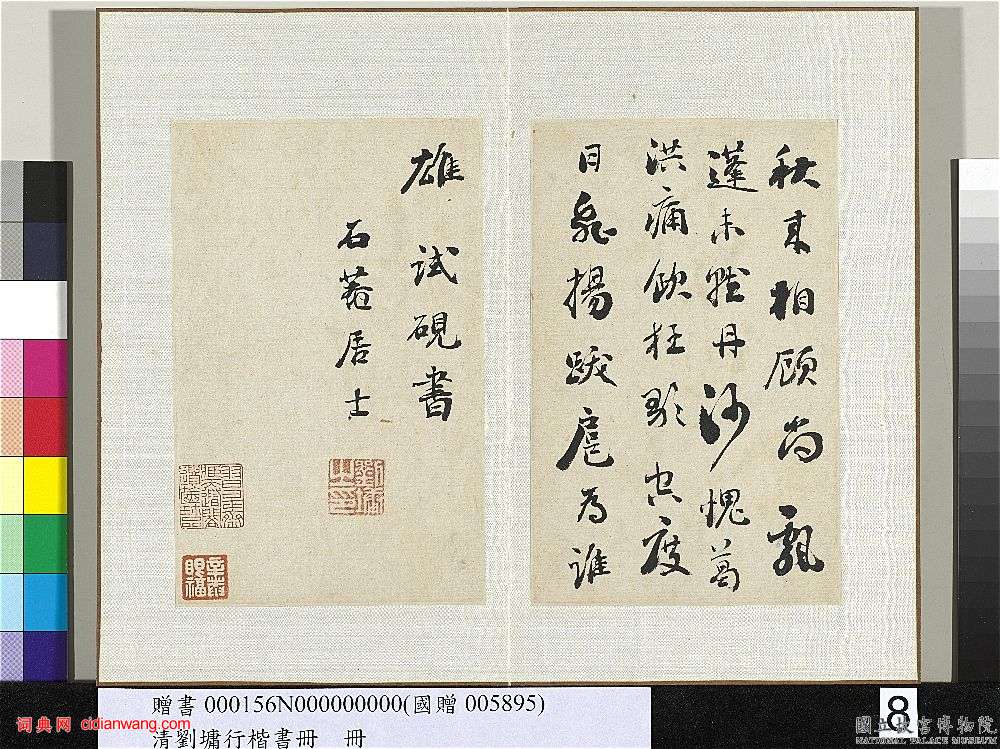 秋來相顧尚飄
蓬未就丹沙愧葛
洪痛飲狂歌空度
日飛揚跋扈為誰
雄 試硯書
石菴居士
劉墉之印
贈書 000156N000000000(國贈 005895)
清劉墉行楷書冊 冊
8
词典网 cidianwang.com
國立故宮博物院
NATIONAL PALACE MUSEUM